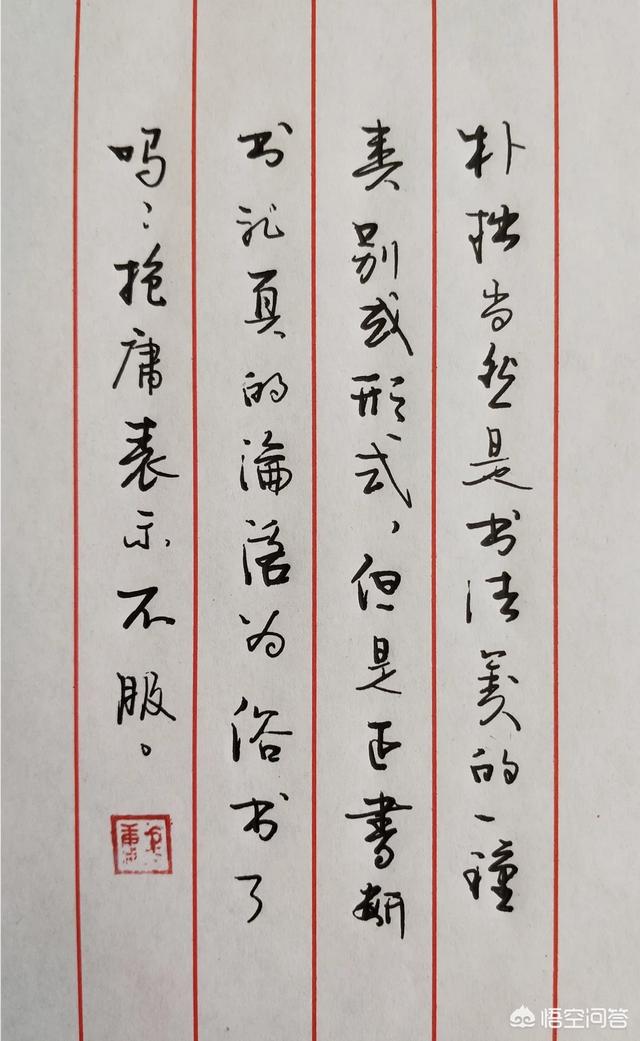 朴拙当然是书法美的一種
类别或形式，但是正書妍
书就真的淪落为俗书了
吗？抱庸表示不服。
悟空问答